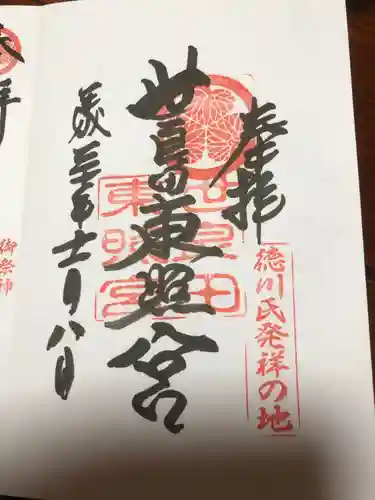 奉拝
徳川氏発祥の地
世良田東照宮
世良田
東照宮
十一月八日
拝
御祭神